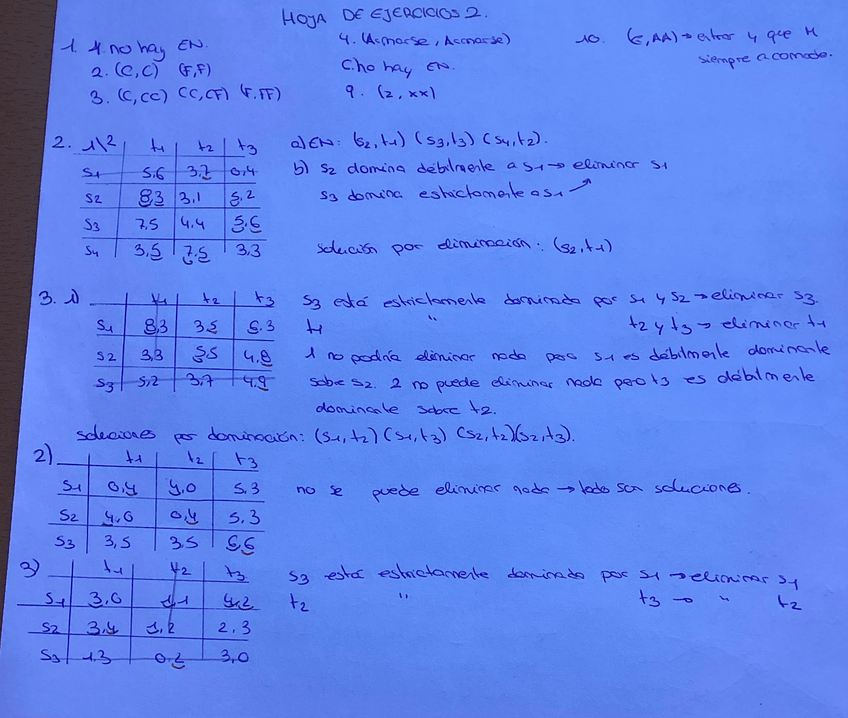 HOJA DE EJERCICIOS 2.
1. 1. no hay EN.
2. (C,C) (F,F)
3. (C,CC) (C,CF) (F,FF)
4. (Acmarse, Acmarse)
C. no hay EN.
9. (2, xx)
10. (E,AA) → entrar y que M
siempre acomode.
2. 1\2 t1 t2 t3
s1 5,6 3,7 0,4
s2 8,3 3,1 5,2
s3 7,5 4,4 5,6
s4 3,5 7,5 3,3
a) EN: (s2,t1) (s3,t3) (s4,t2).
b) s2 domina débilmente a s1 → eliminar s1
s3 domina estrictamente a s1
solución por eliminación: (s2,t1)
3. 1) t1 t2 t3
s1 8,3 3,5 6,3
s2 3,3 5,5 4,8
s3 5,2 3,7 4,9
s3 está estrictamente dominada por s1 y s2 → eliminar s3.
t1 " t2 y t3 → eliminar t1
1 no podría eliminar nada pero s1 es débilmente dominante
sobre s2. 2 no puede eliminar nada pero t3 es débilmente
dominante sobre t2.
soluciones por dominación: (s1,t2) (s1,t3) (s2,t2) (s2,t3).
2) t1 t2 t3
s1 0,4 4,0 5,3
s2 4,0 0,4 5,3
s3 3,5 3,5 6,6
no se puede eliminar nada → todo son soluciones.
3) t1 t2 t3
s1 3,0 1,1 4,2
s2 3,4 1,2 2,3
s3 1,3 0,2 3,0
s3 está estrictamente dominado por s1 → eliminar s1
t2 " t3 → " t2